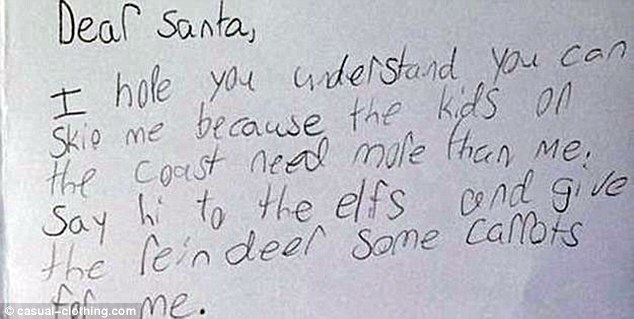 Dear Santa,
I hope you understand you can
Skip me because the kids on
the coast need more than me.
Say hi to the elfs and give
the reindeer some carrots
for me.
© casual-clothing.com